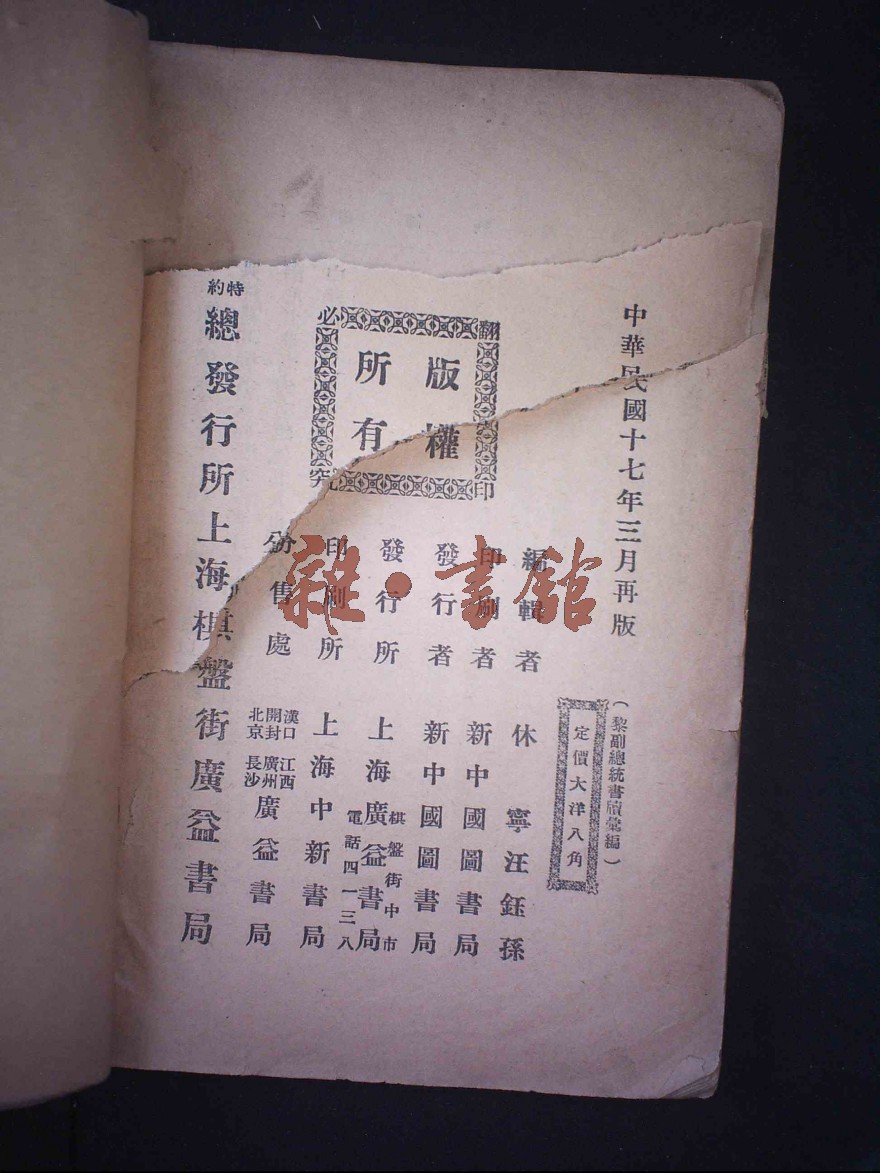 中華民國十七年三月再版
(黎副總統書牘彙編)
定價大洋八角
編輯者 休寧汪鈺孫
印刷者 新中國圖書局
發行者 新中國圖書局
發行所 上海廣益書局
棋盤街中市
電話四一三八
印刷所 上海中新書局
分售處 漢口 開封 北京 江西 廣州 長沙 廣益書局
版權所有
翻印必究
特約
總發行所上海棋盤街廣益書局
雜·書館